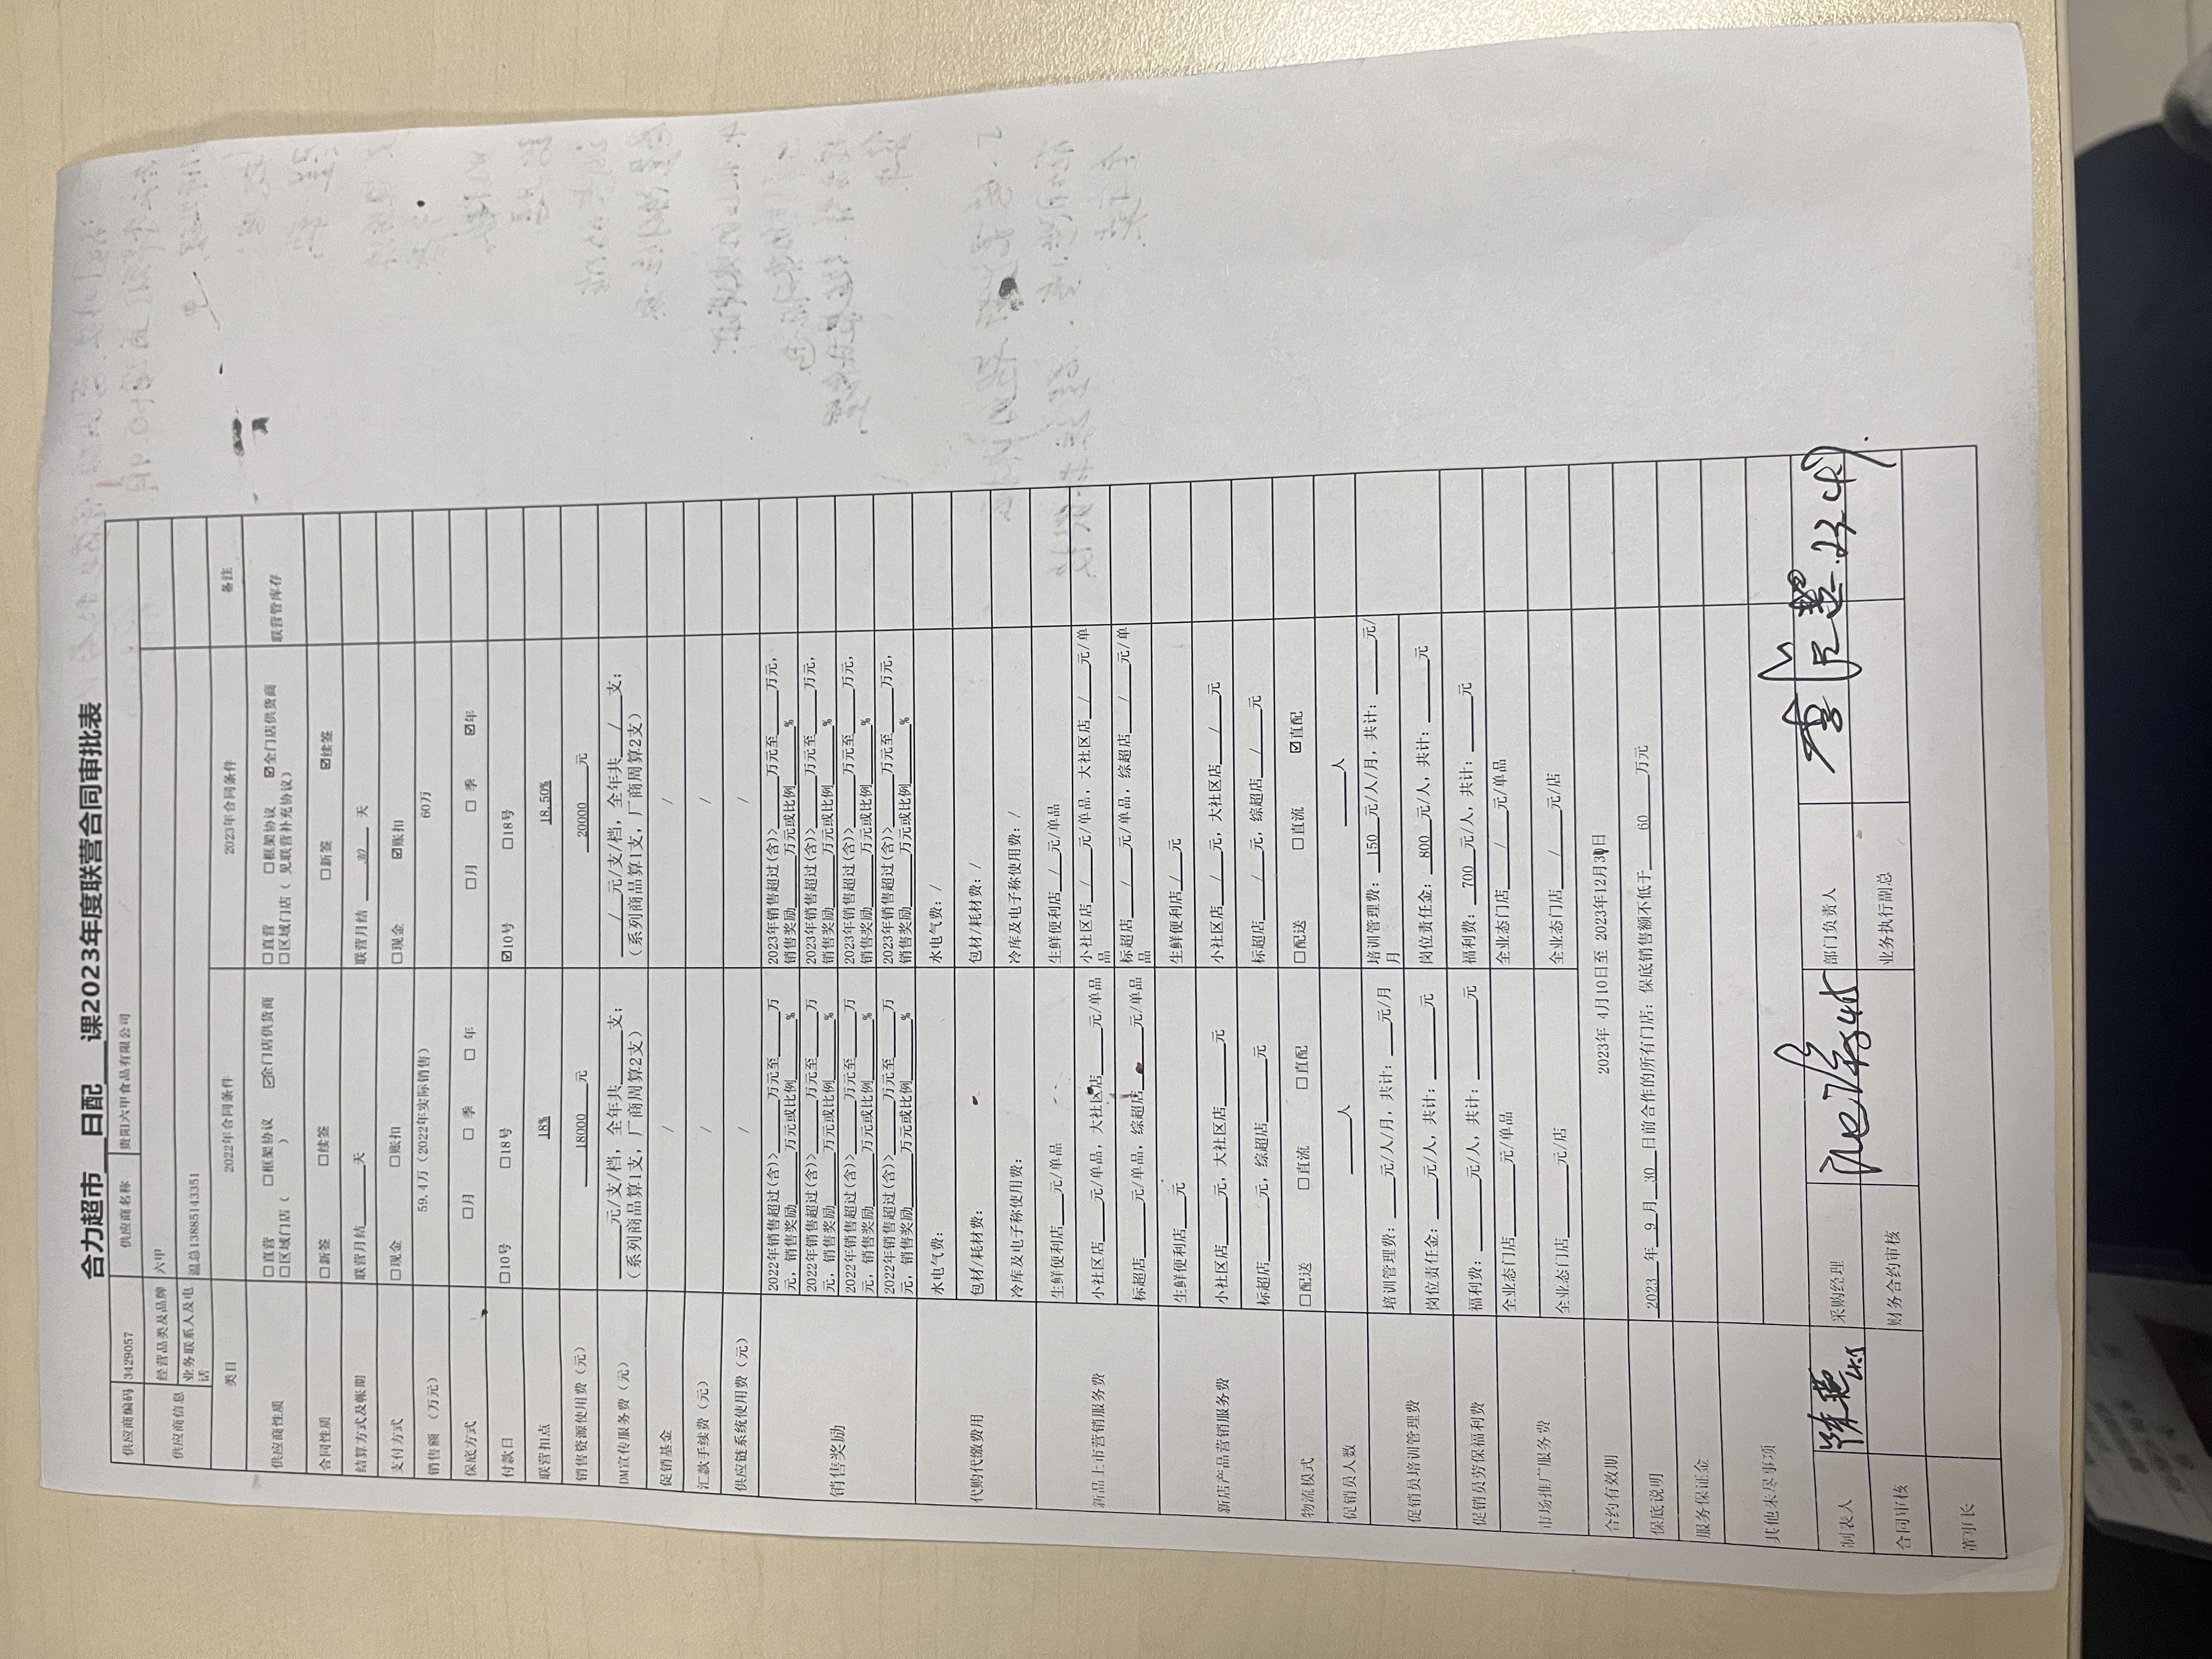 合力超市 日配 课2023年度联营合同审批表
供应商编码 3429057 供应商名称 贵阳六甲食品有限公司
供应商信息 经营品类及品牌 六甲
业务联系人及电话 温总13885143351
类目 2022年合同条件 2023年合同条件 备注
供应商性质 □直营 □框架协议 ☑全门店供货商 □直营 □框架协议 ☑全门店供货商 联营管库存
□区域门店（ ） □区域门店（ 见联营补充协议）
合同性质 □新签 □续签 □新签 ☑续签
结算方式及帐期 联营月结____天 联营月结 30 天
支付方式 □现金 □账扣 □现金 ☑账扣
销售额（万元） 59.4万（2022年实际销售） 60万
保底方式 □月 □ 季 □ 年 □月 □ 季 ☑年
付款日 □10号 □18号 ☑10号 □18号
联营扣点 18% 18.50%
销售资源使用费（元） 18000 元 20000 元
DM宣传服务费（元） ____元/支/档，全年共____支； / 元/支/档，全年共 / 支；
（系列商品算1支，厂商周算2支） （系列商品算1支，厂商周算2支）
促销基金 / /
汇款手续费（元） / /
供应链系统使用费（元） / /
销售奖励 2022年销售超过(含)>____万元至____万元，销售奖励____万元或比例____% 2023年销售超过(含)>____万元至____万元，销售奖励____万元或比例____%
2022年销售超过(含)>____万元至____万元，销售奖励____万元或比例____% 2023年销售超过(含)>____万元至____万元，销售奖励____万元或比例____%
2022年销售超过(含)>____万元至____万元，销售奖励____万元或比例____% 2023年销售超过(含)>____万元至____万元，销售奖励____万元或比例____%
2022年销售超过(含)>____万元至____万元，销售奖励____万元或比例____% 2023年销售超过(含)>____万元至____万元，销售奖励____万元或比例____%
代购代缴费用 水电气费： 水电气费：/
包材/耗材费： 包材/耗材费：/
冷库及电子称使用费： 冷库及电子称使用费：/
新品上市营销服务费 生鲜便利店____元/单品 生鲜便利店 / 元/单品
小社区店____元/单品，大社区店____元/单品 小社区店 / 元/单品，大社区店 / 元/单品
标超店____元/单品，综超店____元/单品 标超店 / 元/单品，综超店 / 元/单品
新店产品营销服务费 生鲜便利店____元 生鲜便利店 / 元
小社区店____元，大社区店____元 小社区店 / 元，大社区店 / 元
标超店____元，综超店____元 标超店 / 元，综超店 / 元
物流模式 □配送 □直流 □直配 □配送 □直流 ☑直配
促销员人数 ____人 ____人
促销员培训管理费 培训管理费：____元/人/月，共计：____元/月 培训管理费： 150 元/人/月，共计：____元/月
岗位责任金：____元/人，共计：____元 岗位责任金： 800 元/人，共计：____元
促销员劳保福利费 福利费：____元/人，共计：____元 福利费： 700 元/人，共计：____元
市场推广服务费 全业态门店____元/单品 全业态门店 / 元/单品
全业态门店____元/店 全业态门店 / 元/店
合约有效期 2023年 4月10日至 2023年12月30日
保底说明 2023 年 9 月 30 日前合作的所有门店：保底销售额不低于 60 万元
服务保证金
其他未尽事项
制表人 采购经理 部门负责人 23.4.9.
合同审核 财务合约审核 业务执行副总
董事长